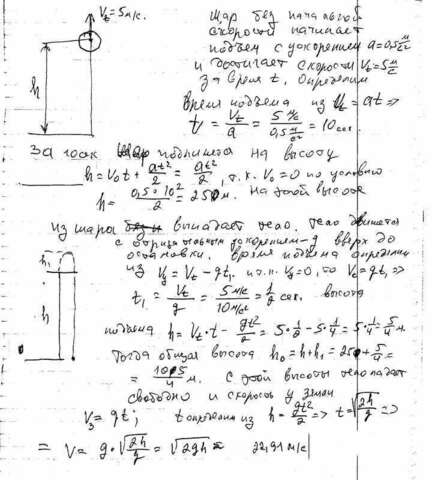 Vt = 5 м/с.
Шар без начальной
скорости начинает
подъем с ускорением a = 0,5 м/с²
и достигает скорости Vt = 5 м/с
за время t. Определим
время подъема из Vt = at =>
t = Vt/a = (5 м/с)/(0,5 м/с²) = 10 сек.
h
За 10 сек Шар поднимется на высоту
h = V₀t + at²/2 = at²/2, т.к. V₀ = 0 по условию
h = 0,5·10²/2 = 25 м. На этой высоте
из шара выпадает тело. Тело движется
с отрицательным ускорением -g вверх до
остановки. Время подъема определим
из Vy = Vt - gt₁. и т.к. Vy = 0, то Vt = gt₁ =>
h₁
t₁ = Vt/g = (5 м/с)/(10 м/с²) = 1/2 сек. высота
h
подъема h = Vt·t - gt²/2 = 5·1/2 - 5·1/4 = 5·1/4 = 5/4 м.
Тогда общая высота h₀ = h + h₁ = 25 + 5/4 =
= 105/4 м. С этой высоты тело падает
свободно и скорость у Земли
V₃ = gt; t определим из h = gt²/2 => t = √(2h/g) =>
= V = g·√(2h/g) = √(2gh) = 22,91 м/с